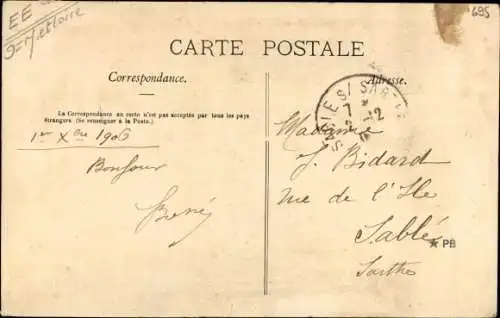 EE
9=M et Loire
695
CARTE POSTALE
Correspondance.
Adresse.
La Correspondance au verso n'est pas acceptée par tous les pays
étrangers (Se renseigner à la Poste.)
1er Xbre 1906
Bonjour
René
Madame
J. Bidard
rue de l'Ile
Sablé
Sarthe
* PB